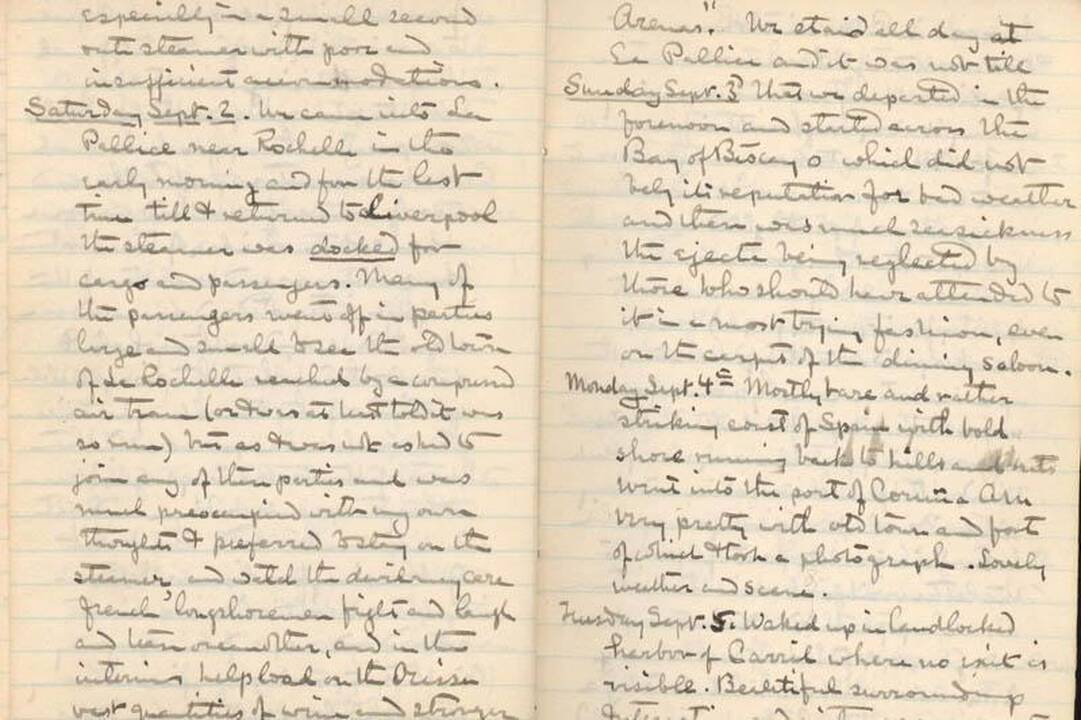 especially in a small second
rate steamer with poor and
insufficient accommodations.
Saturday Sept. 2. We came into La
Pallice near Rochelle in the
early morning and for the last
time till I returned to Liverpool
the steamer was docked for
cargo and passengers. Many of
the passengers went off in parties
large and small to see the old town
of La Rochelle reached by a compressed
air tram (or I was at least told it was
so run) but as I was not asked to
join any of these parties and was
much preoccupied with my own
thoughts I preferred to stay on the
steamer and watch the devil may care
french 'longshoremen fight and laugh
and tease one another, and in the
interims help load on the Orissa
vast quantities of wine and stronger
Arenas". We staid all day at
La Pallice and it was not till
Sunday Sept. 3 That we departed in the
forenoon and started across the
Bay of Biscay which did not
bely its reputation for bad weather
and there was much seasickness
the ejecta being neglected by
those who should have attended to
it in a most trying fashion, even
on the carpet of the dining saloon.
Monday Sept. 4th Mostly bare and rather
striking coast of Spain with bold
shore running back to hills and
went into the port of Coruña
very pretty with old town and fort
of which I took a photograph. Lovely
weather and scene.
Tuesday Sept. 5. Waked up in landlocked
harbor of Carril where no exit is
visible. Beautiful surroundings